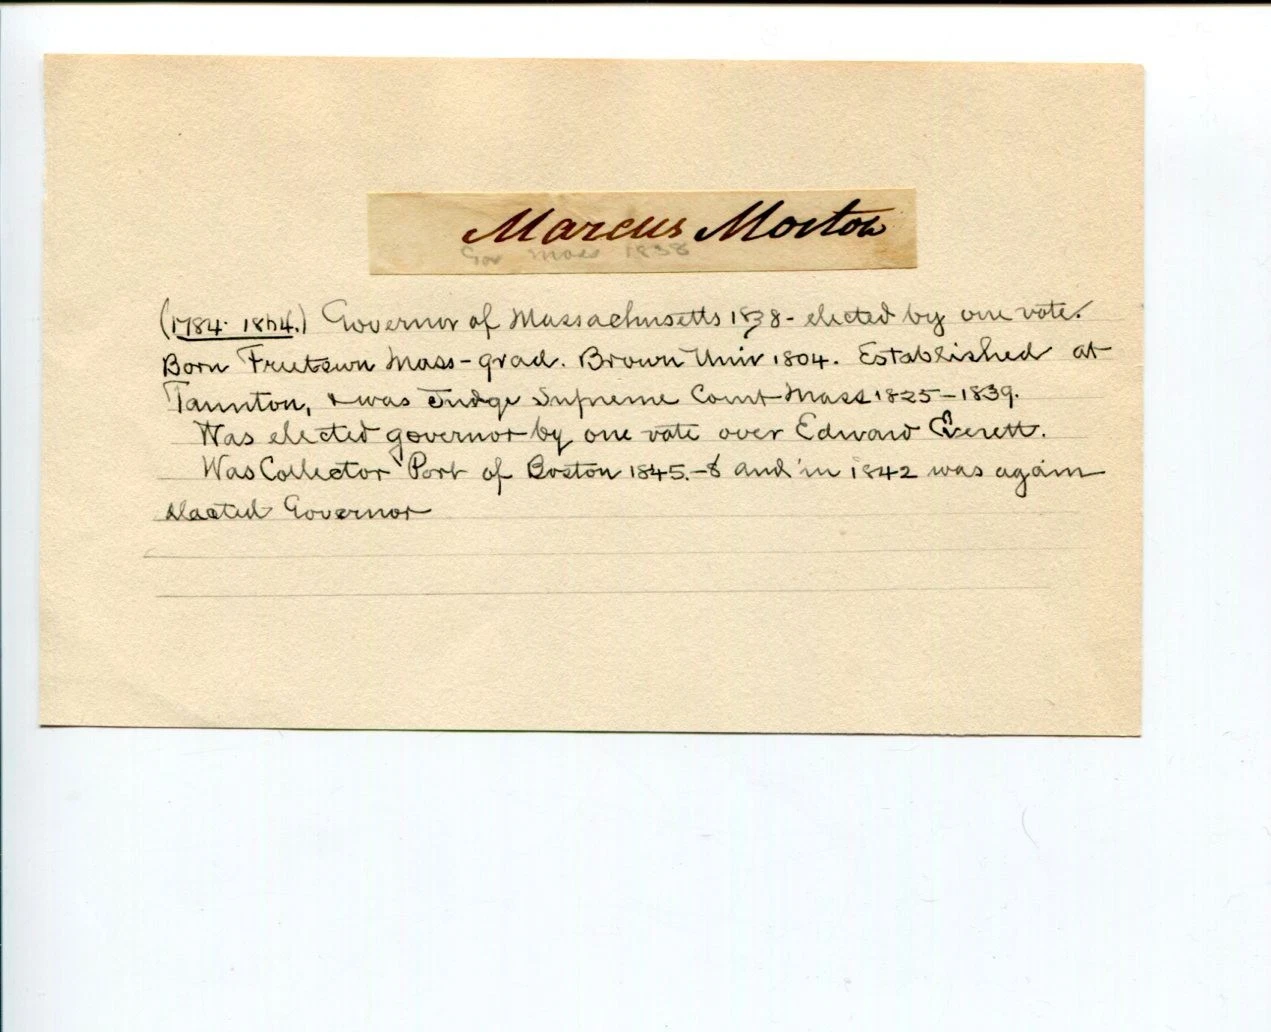 Marcus Morton
Gov Mass 1838
(1784-1864.) Governor of Massachusetts 1838- elected by one vote.
Born Freetown Mass-grad. Brown Univ 1804. Established at
Taunton, & was Judge Supreme Court Mass 1825-1839.
Was elected governor by one vote over Edward Everett.
Was Collector Port of Boston 1845.-8 and in 1842 was again
elected Governor